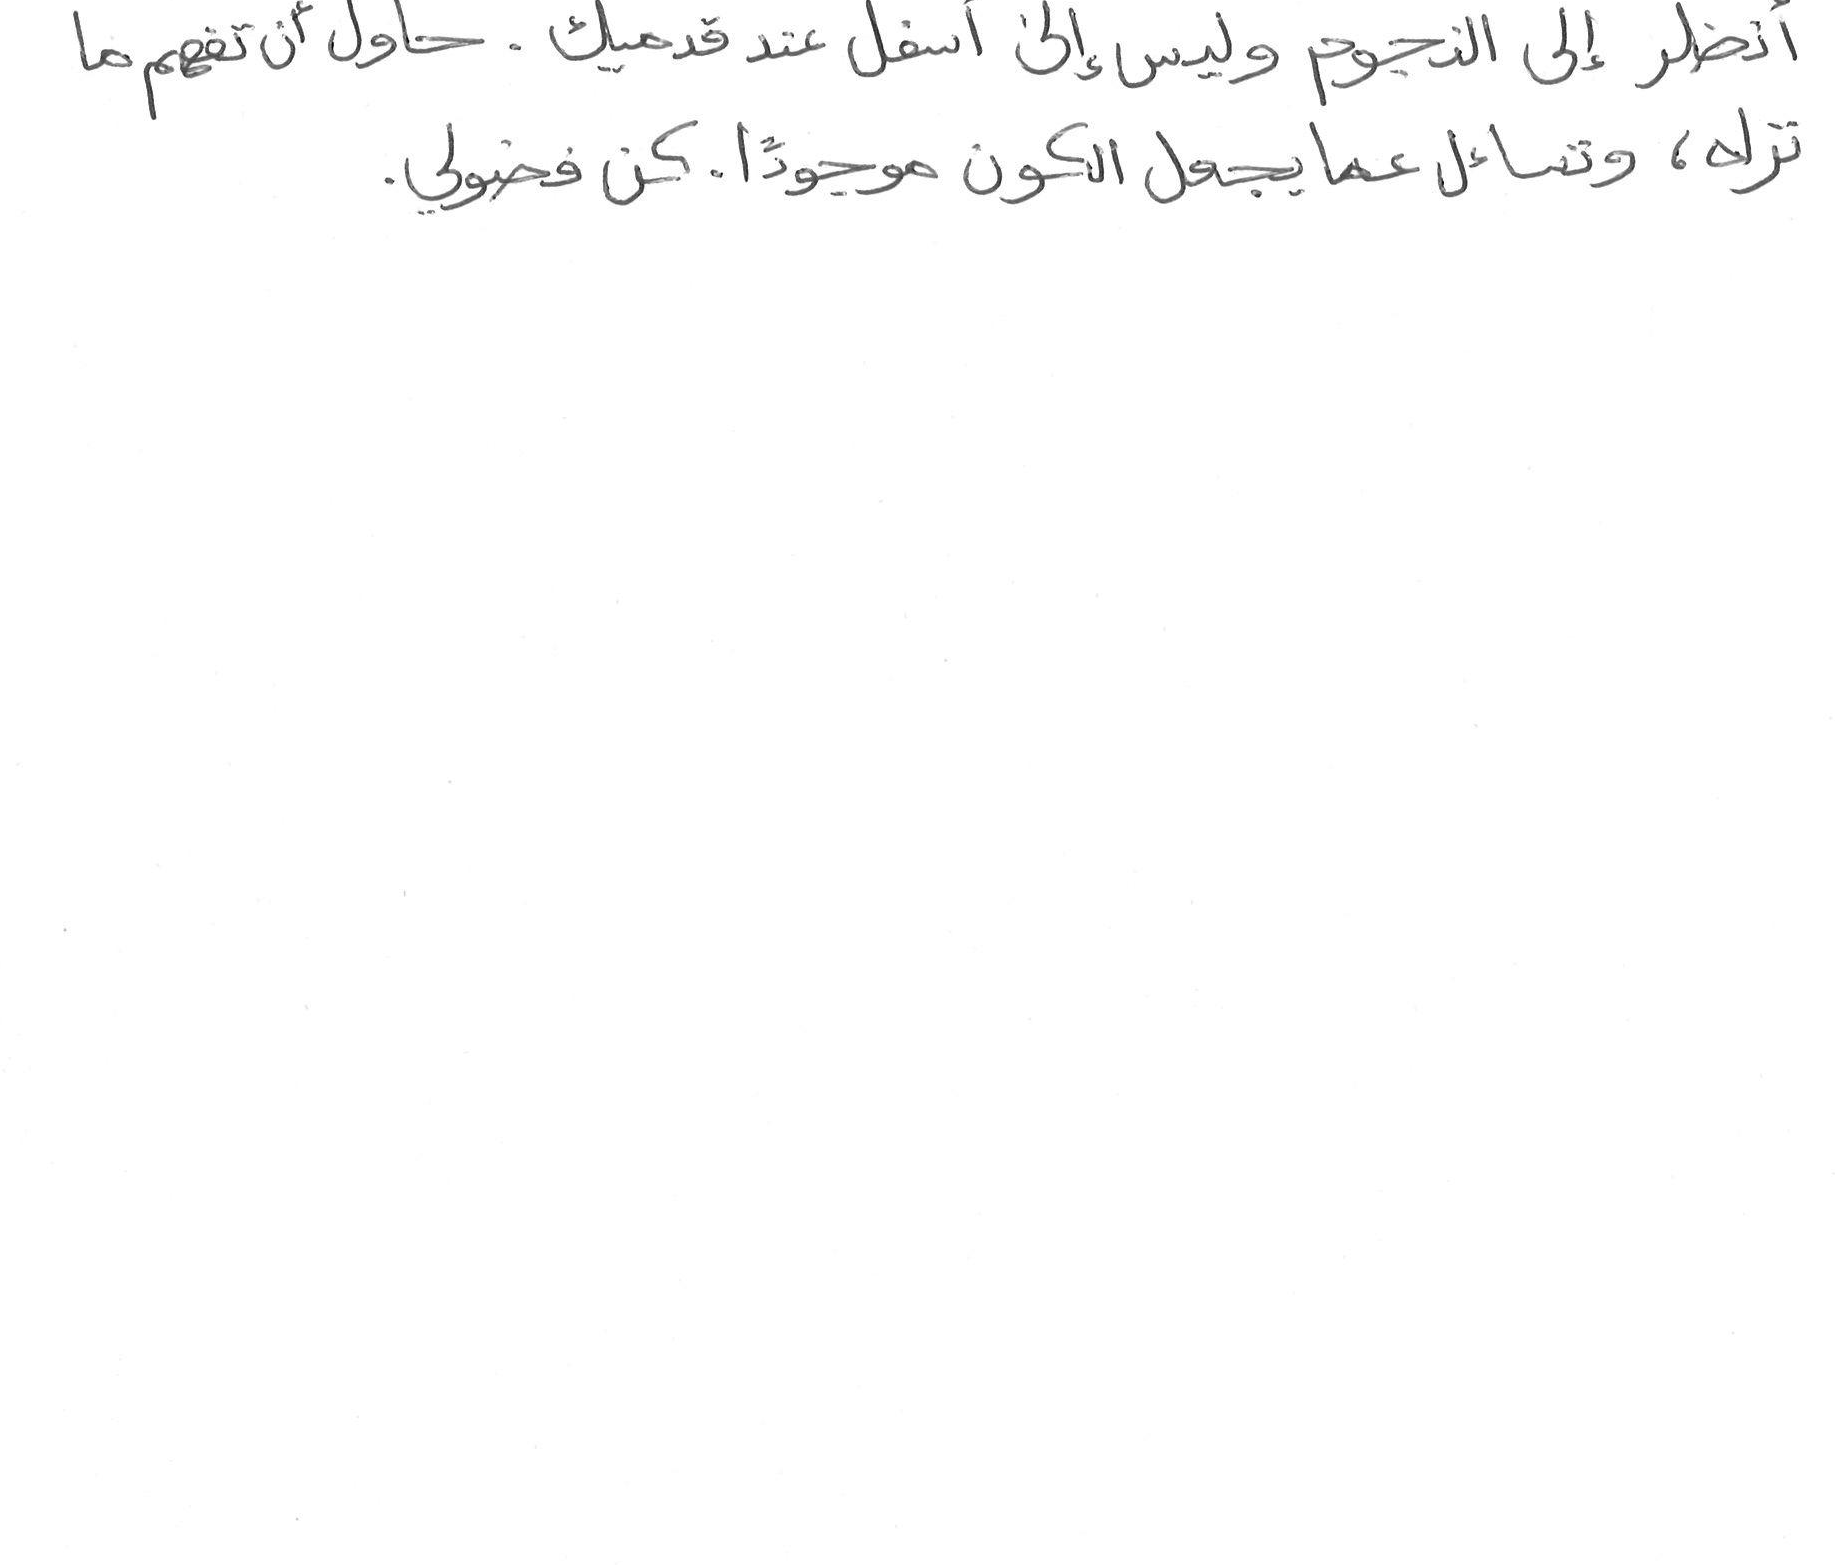 أنضر إلى النجوم وليس إلى أسفل عند قدميك. حاول أن تفهم ما
تراه، وتساءل عما يجعل الكون موجودًا. كن فضولي.